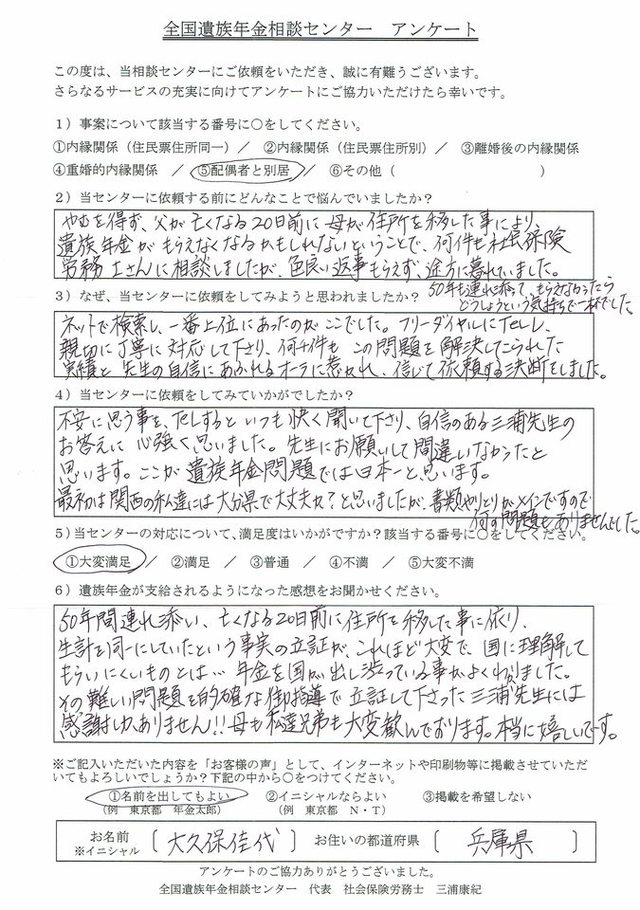 全国遺族年金相談センター　アンケート
この度は、当相談センターにご依頼をいただき、誠に有難うございます。
さらなるサービスの充実に向けてアンケートにご協力いただけたら幸いです。
1）事案について該当する番号に○をしてください。
①内縁関係（住民票住所同一）／　②内縁関係（住民票住所別）／　③離婚後の内縁関係
④重婚的内縁関係　／　⑤配偶者と別居／　⑥その他（　　　　　　　　　　）
2）当センターに依頼する前にどんなことで悩んでいましたか？
やむを得ず、父が亡くなる20日前に母が住所を移した事により、
遺族年金がもらえなくなるかもしれないということで、何件も社会保険
労務士さんに相談しましたが、色良い返事もらえず、途方に暮れていました。
50年も連れ添って、もらえなかったら
どうしようという気持ちで一杯でした
3）なぜ、当センターに依頼をしてみようと思われましたか？
ネットで検索し、一番上位にあったのがここでした。フリーダイヤルにTELし、
親切に丁寧に対応して下さり、何千件もこの問題を解決してこられた
実績と先生の自信にあふれるオーラに惹かれ、信じて依頼する決断をしました。
4）当センターに依頼をしてみていかがでしたか？
不安に思う事を、TELするといつも快く聞いて下さり、自信のある三浦先生の
お答えに心強く思いました。先生にお願いして間違いなかったと
思います。ここが遺族年金問題では日本一と思います。
最初は関西の私達には大分県で大丈夫か？と思いましたが、書類やりとりがメインですので
何の問題もありませんでした。
5）当センターの対応について、満足度はいかがですか？該当する番号に○をしてください。
①大変満足／　②満足　／　③普通　／　④不満　／　⑤大変不満
6）遺族年金が支給されるようになった感想をお聞かせください。
50年間連れ添い、亡くなる20日前に住所を移した事に依り、
生計を同一にしていたという事実の立証が、これほど大変で、国に理解して
もらいにくいものとは…年金を国が出し渋っている事がよくわかりました。
その難しい問題を的確な御指導で立証して下さった三浦先生には
感謝しかありません!!母も私達兄弟も大変歓んでおります。本当に嬉しいです。
※ご記入いただいた内容を「お客様の声」として、インターネットや印刷物等に掲載させていただ
いてもよろしいでしょうか？下記の中から○をつけてください。
①名前を出してもよい　　②イニシャルならよい　　③掲載を希望しない
（例　東京都　年金太郎）　　（例　東京都　N・T）
お名前
※イニシャル
〔 大久保佳代 〕　お住いの都道府県　〔 兵庫県 〕
アンケートのご協力ありがとうございました。
全国遺族年金相談センター　代表　社会保険労務士　三浦康紀